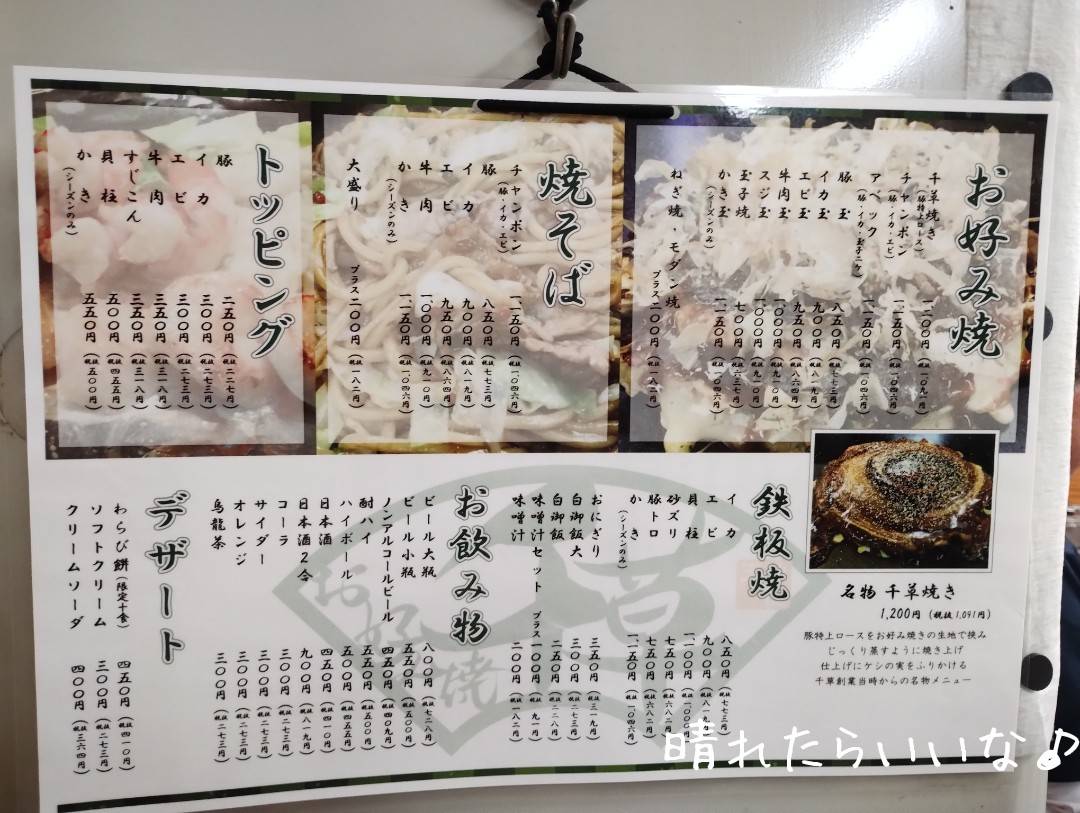 お好み焼
千草焼き（豚特上ロース） 一、二〇〇円（税抜 一、〇九一円）
チャンポン（豚・イカ・エビ） 一、一五〇円（税抜 一、〇四六円）
アベック（豚・イカ・玉子二ケ） 一、一五〇円（税抜 一、〇四六円）
豚玉 八五〇円（税抜 七七三円）
イカ玉 九〇〇円（税抜 八一九円）
エビ玉 九五〇円（税抜 八六四円）
牛肉玉 一、〇〇〇円（税抜 九一〇円）
スジ玉 一、〇〇〇円（税抜 九一〇円）
玉子焼 七〇〇円（税抜 六三七円）
かき玉（シーズンのみ） 一、一五〇円（税抜 一、〇四六円）
ねぎ焼・モダン焼 プラス二〇〇円（税抜 一八二円）
焼そば
チャンポン（豚・イカ・エビ） 一、一五〇円（税抜 一、〇四六円）
豚 八五〇円（税抜 七七三円）
イカ 九〇〇円（税抜 八一九円）
エビ 九五〇円（税抜 八六四円）
牛肉 一、〇〇〇円（税抜 九一〇円）
かき（シーズンのみ） 一、一五〇円（税抜 一、〇四六円）
大盛り プラス二〇〇円（税抜 一八二円）
トッピング
豚 二五〇円（税抜 二二七円）
イカ 三〇〇円（税抜 二七三円）
エビ 三〇〇円（税抜 二七三円）
牛肉 三五〇円（税抜 三一八円）
すじこん 三五〇円（税抜 三一八円）
貝柱 五〇〇円（税抜 四五五円）
かき（シーズンのみ） 五五〇円（税抜 五〇〇円）
名物 千草焼き
1,200円（税抜 1,091円）
豚特上ロースをお好み焼きの生地で挟み
じっくり蒸すように焼き上げ
仕上げにケシの実をふりかける
千草創業当時からの名物メニュー
鉄板焼
イカ 八五〇円（税抜 七七三円）
エビ 九〇〇円（税抜 八一九円）
貝柱 一、一〇〇円（税抜 一、〇〇〇円）
砂ズリ 七五〇円（税抜 六八二円）
豚トロ 七五〇円（税抜 六八二円）
かき（シーズンのみ） 一、一五〇円（税抜 一、〇四六円）
おにぎり 三五〇円（税抜 三一九円）
白御飯大 三〇〇円（税抜 二七三円）
白御飯 二五〇円（税抜 二二八円）
味噌汁セット プラス一〇〇円（税抜 九一円）
味噌汁 二〇〇円（税抜 一八二円）
お飲み物
ビール大瓶 八〇〇円（税抜 七二八円）
ビール小瓶 五五〇円（税抜 五〇〇円）
ノンアルコールビール 四五〇円（税抜 四〇九円）
酎ハイ 五五〇円（税抜 五〇〇円）
ハイボール 五〇〇円（税抜 四五五円）
日本酒 四五〇円（税抜 四一〇円）
日本酒2合 九〇〇円（税抜 八一九円）
コーラ 三〇〇円（税抜 二七三円）
サイダー 三〇〇円（税抜 二七三円）
オレンジ 三〇〇円（税抜 二七三円）
烏龍茶 三〇〇円（税抜 二七三円）
デザート
わらび餅（限定十食） 四五〇円（税抜 四一〇円）
ソフトクリーム 三〇〇円（税抜 二七三円）
クリームソーダ 四〇〇円（税抜 三六四円）
晴れたらいいな♪